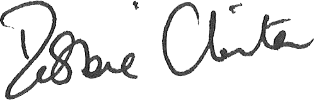 Debbie Clinton